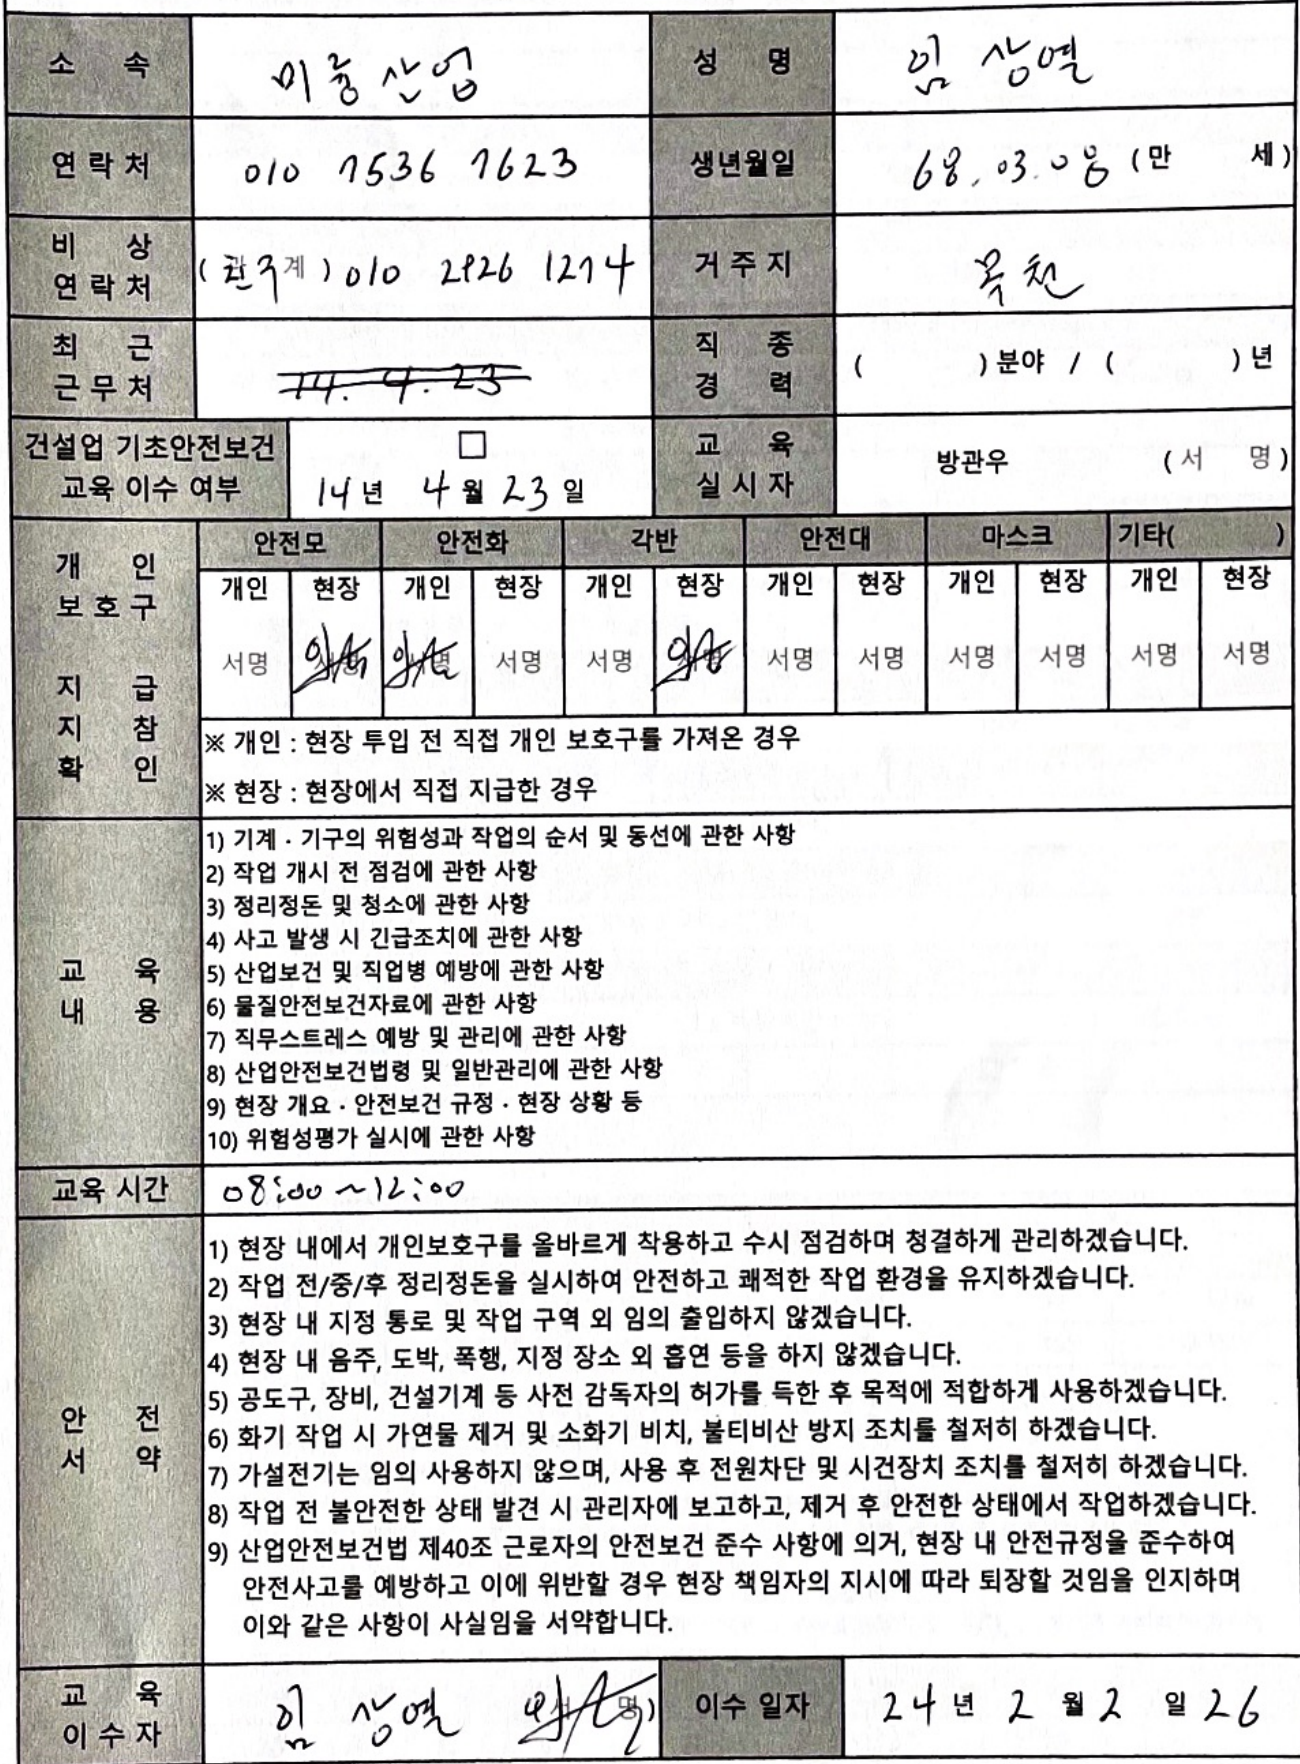 소 속 미중산업 성 명 임상열
연락처 010 7536 7623 생년월일 68.03.08 (만 세)
비 상
연락처 ( 계 ) 010 2926 1274 거주지 목천
최 근
근무처 14. 4. 23 직 종
경 력 ( ) 분야 / ( ) 년
건설업 기초안전보건
교육 이수 여부 □
14년 4월 23일 교 육
실시자 방관우 (서 명)
개 인
보호구
지 급
지 참
확 인
안전모 안전화 각반 안전대 마스크 기타( )
개인 현장 개인 현장 개인 현장 개인 현장 개인 현장 개인 현장
서명 서명 서명 서명 서명 서명 서명 서명 서명 서명 서명 서명
※ 개인 : 현장 투입 전 직접 개인 보호구를 가져온 경우
※ 현장 : 현장에서 직접 지급한 경우
교 육
내 용
1) 기계 · 기구의 위험성과 작업의 순서 및 동선에 관한 사항
2) 작업 개시 전 점검에 관한 사항
3) 정리정돈 및 청소에 관한 사항
4) 사고 발생 시 긴급조치에 관한 사항
5) 산업보건 및 직업병 예방에 관한 사항
6) 물질안전보건자료에 관한 사항
7) 직무스트레스 예방 및 관리에 관한 사항
8) 산업안전보건법령 및 일반관리에 관한 사항
9) 현장 개요 · 안전보건 규정 · 현장 상황 등
10) 위험성평가 실시에 관한 사항
교육 시간 08:00 ~ 12:00
안 전
서 약
1) 현장 내에서 개인보호구를 올바르게 착용하고 수시 점검하며 청결하게 관리하겠습니다.
2) 작업 전/중/후 정리정돈을 실시하여 안전하고 쾌적한 작업 환경을 유지하겠습니다.
3) 현장 내 지정 통로 및 작업 구역 외 임의 출입하지 않겠습니다.
4) 현장 내 음주, 도박, 폭행, 지정 장소 외 흡연 등을 하지 않겠습니다.
5) 공도구, 장비, 건설기계 등 사전 감독자의 허가를 득한 후 목적에 적합하게 사용하겠습니다.
6) 화기 작업 시 가연물 제거 및 소화기 비치, 불티비산 방지 조치를 철저히 하겠습니다.
7) 가설전기는 임의 사용하지 않으며, 사용 후 전원차단 및 시건장치 조치를 철저히 하겠습니다.
8) 작업 전 불안전한 상태 발견 시 관리자에 보고하고, 제거 후 안전한 상태에서 작업하겠습니다.
9) 산업안전보건법 제40조 근로자의 안전보건 준수 사항에 의거, 현장 내 안전규정을 준수하여
안전사고를 예방하고 이에 위반할 경우 현장 책임자의 지시에 따라 퇴장할 것임을 인지하며
이와 같은 사항이 사실임을 서약합니다.
교 육
이수자 임상열 (서 명) 이수 일자 24년 2월 2일 26